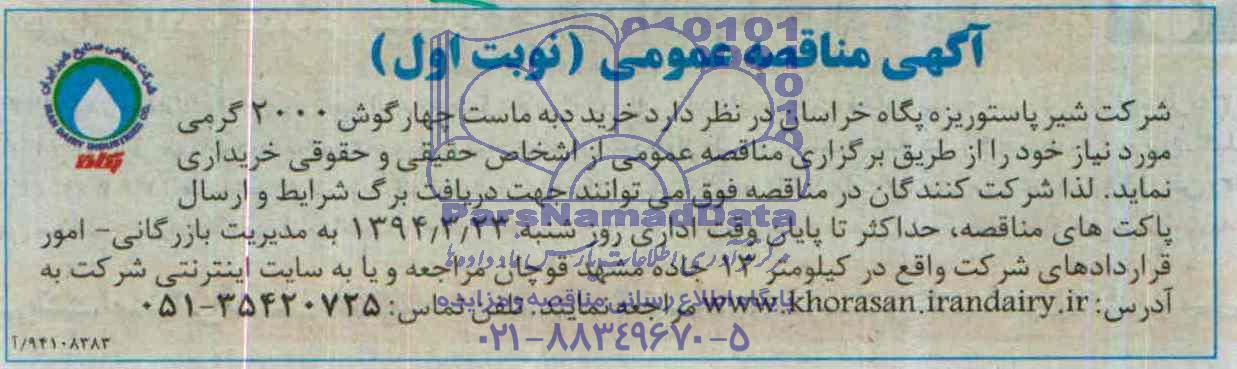 آگهی مناقصه عمومی (نوبت اول)
شرکت شیر پاستوریزه پگاه خراسان در نظر دارد خرید دبه ماست چهار گوش ۲۰۰۰ گرمی
مورد نیاز خود را از طریق برگزاری مناقصه عمومی از اشخاص حقیقی و حقوقی خریداری
نماید. لذا شرکت کنندگان در مناقصه فوق می توانند جهت دریافت برگ شرایط و ارسال
پاکت های مناقصه، حداکثر تا پایان وقت اداری روز شنبه ۱۳۹۴/۳/۲۳ به مدیریت بازرگانی- امور
قراردادهای شرکت واقع در کیلومتر ۱۳ جاده مشهد قوچان مراجعه و یا به سایت اینترنتی شرکت به
آدرس: www.khorasan.irandairy.ir مراجعه نمایند. تلفن تماس: ۰۵۱-۳۵۴۲۰۷۲۵
آ/۹۴۱۰۸۳۸۳
شرکت سهامی صنایع شیر ایران
IRAN DAIRY INDUSTRIES CO.
پگاه
ParsNamadData
پایگاه اطلاع رسانی مناقصه و مزایده
۰۲۱-۸۸۳۴۹۶۷۰-۵